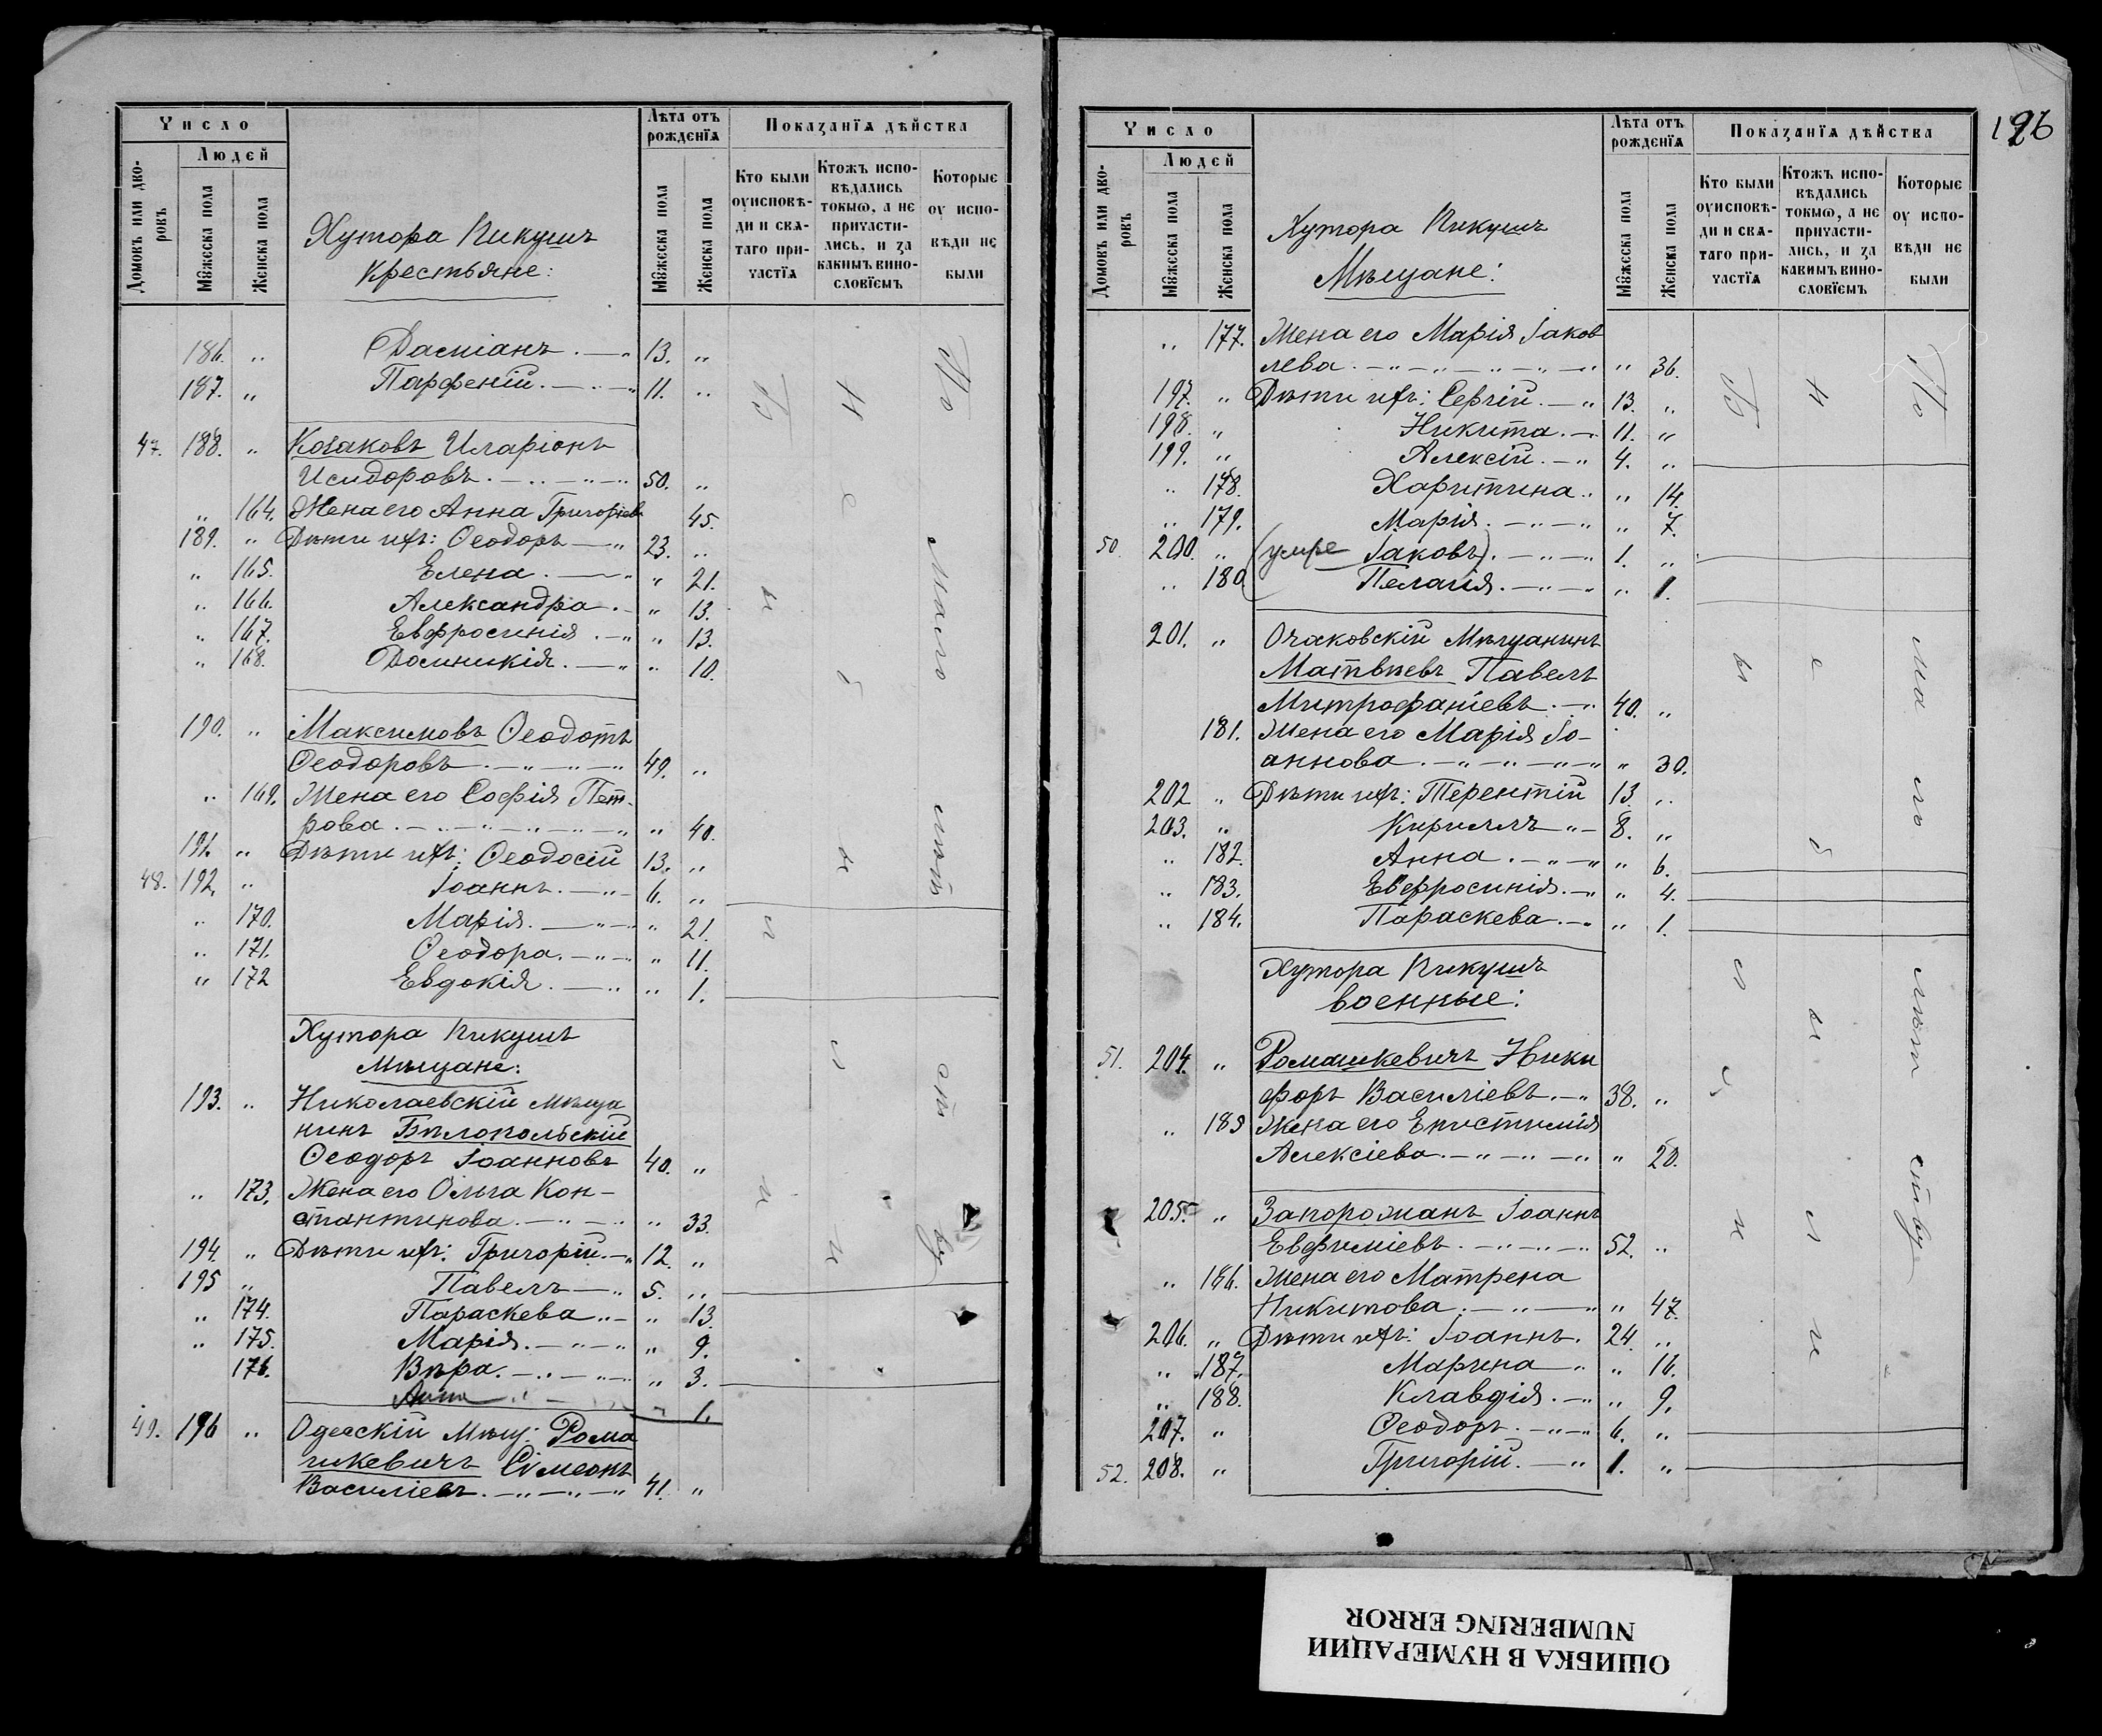 Число
Людей
Домовъ или дворовъ
Мꙋжеска пола
Женска пола
Хутора Пикушъ
Крестьяне:
Лѣта отъ рожденїѧ
Мꙋжеска пола
Женска пола
Показанїѧ дѣйства
Кто были оу исповѣди и свѧтаго причастїѧ
Ктожъ исповѣдались токмѡ, а не причастились, и за какимъ винословїемъ
Которые оу исповѣди не были
186. „ Даміанъ. — „ 13. „
187. „ Парфеній. — „ — „ 11. „
47. 188. „ Козаковъ Иларіонъ
Исидоровъ. — „ — „ — „ 50. „
„ 164. Жена его Анна Григоріев „ 45.
189. „ Дѣти ихъ: Ѳеодоръ — „ 23. „
„ 165. Елена. — „ „ 21.
„ 166. Александра. — „ 13.
„ 167. Евфросинія. — „ „ 13.
„ 168. Домникія. — „ „ 10.
190. „ Максимовъ Ѳеодотъ
Ѳеодоровъ — „ — „ — „ 49. „
„ 169. Жена его Софія Пет-
рова. — „ — „ — „ — „ „ 40.
191. „ Дѣти ихъ: Ѳеодосій 13. „
48. 192. „ Іоаннъ. — „ — 6. „
„ 170. Марія. — „ — „ 21.
„ 171. Ѳеодора. — „ — „ 11.
„ 172 Евдокія. — „ „ 1.
Хутора Пикушъ
Мѣщане:
193. „ Николаевскій мѣща
нинъ Бѣлопольскій
Ѳеодоръ Іоанновъ 40. „
„ 173. Жена его Ольга Кон-
стантинова. — „ — „ „ 33.
194. „ Дѣти ихъ: Григорій. — „ 12. „
195 „ Павелъ — „ 5. „
„ 174. Параскева „ — „ 13.
„ 175. Марія. — „ — „ „ 9.
176. Вѣра. — „ — „ — „ 3.
Анна — „ 1.
49. 196 „ Одесскій Мѣщ: Рома
шкевичъ Сѵмеонъ
Василіевъ. — „ — „ — „ 41. „
Были
Не были
По малолѣтству
196
Число
Людей
Домовъ или дворовъ
Мꙋжеска пола
Женска пола
Хутора Пикушъ
Мѣщане:
Лѣта отъ рожденїѧ
Мꙋжеска пола
Женска пола
Показанїѧ дѣйства
Кто были оу исповѣди и свѧтаго причастїѧ
Ктожъ исповѣдались токмѡ, а не причастились, и за какимъ винословїемъ
Которые оу исповѣди не были
„ 177. Жена его Марія Іаков
лева. — „ — „ — „ — „ — „ „ 36.
197. „ Дѣти ихъ: Сергій. — „ 13. „
198. „ Никита. — „ 11. „
199. „ Алексій. — „ 4. „
„ 178. Харитина. „ „ 14.
„ 179. Марія. — „ — „ „ 7.
50. 200. „ (умре Іаковъ). — „ — „ 1. „
„ 180 Пелагія. — „ — „ „ 1.
201. „ Очаковскій Мѣщанинъ
Матвѣевъ Павелъ
Митрофаніевъ. — „ 40. „
181. Жена его Марія Іо-
аннова. — „ — „ — „ — „ „ 30.
202 „ Дѣти ихъ: Терентій 13. „
203. „ Кириллъ „ — 8. „
„ 182. Анна. — „ — „ „ 6.
„ 183. Евфросинія. — „ „ 4.
„ 184. Параскева. — „ „ 1.
Хутора Пикушъ
военные:
51. 204. „ Ромашкевичъ Ники
форъ Василіевъ. — „ 38. „
„ 185 Жена его Епистимія
Алексіева. — „ — „ — „ „ 20.
205. „ Запорожанъ Іоаннъ
Евфиміевъ. — „ — „ — „ 52. „
„ 186. Жена его Матрена
Никитова. — „ — „ „ 47.
206. „ Дѣти ихъ: Іоаннъ. 24. „
„ 187. Марина — „ „ 16.
„ 188. Клавдія. — „ „ 9.
207. „ Ѳеодоръ. — „ — „ 6. „
52. 208. „ Григорій. — „ 1. „
Были
Не были
По малолѣтству
ОШИБКА В НУМЕРАЦИИ
NUMBERING ERROR